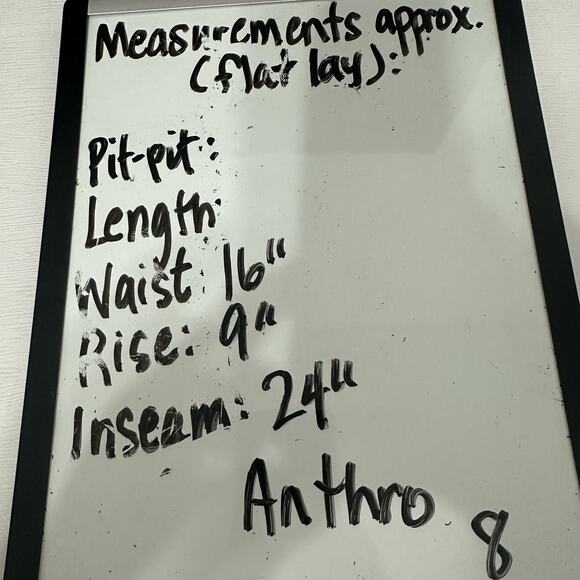 Measurements approx.
(flat lay):
Pit-pit:
Length:
Waist: 16"
Rise: 9"
Inseam: 24"
Anthro
8